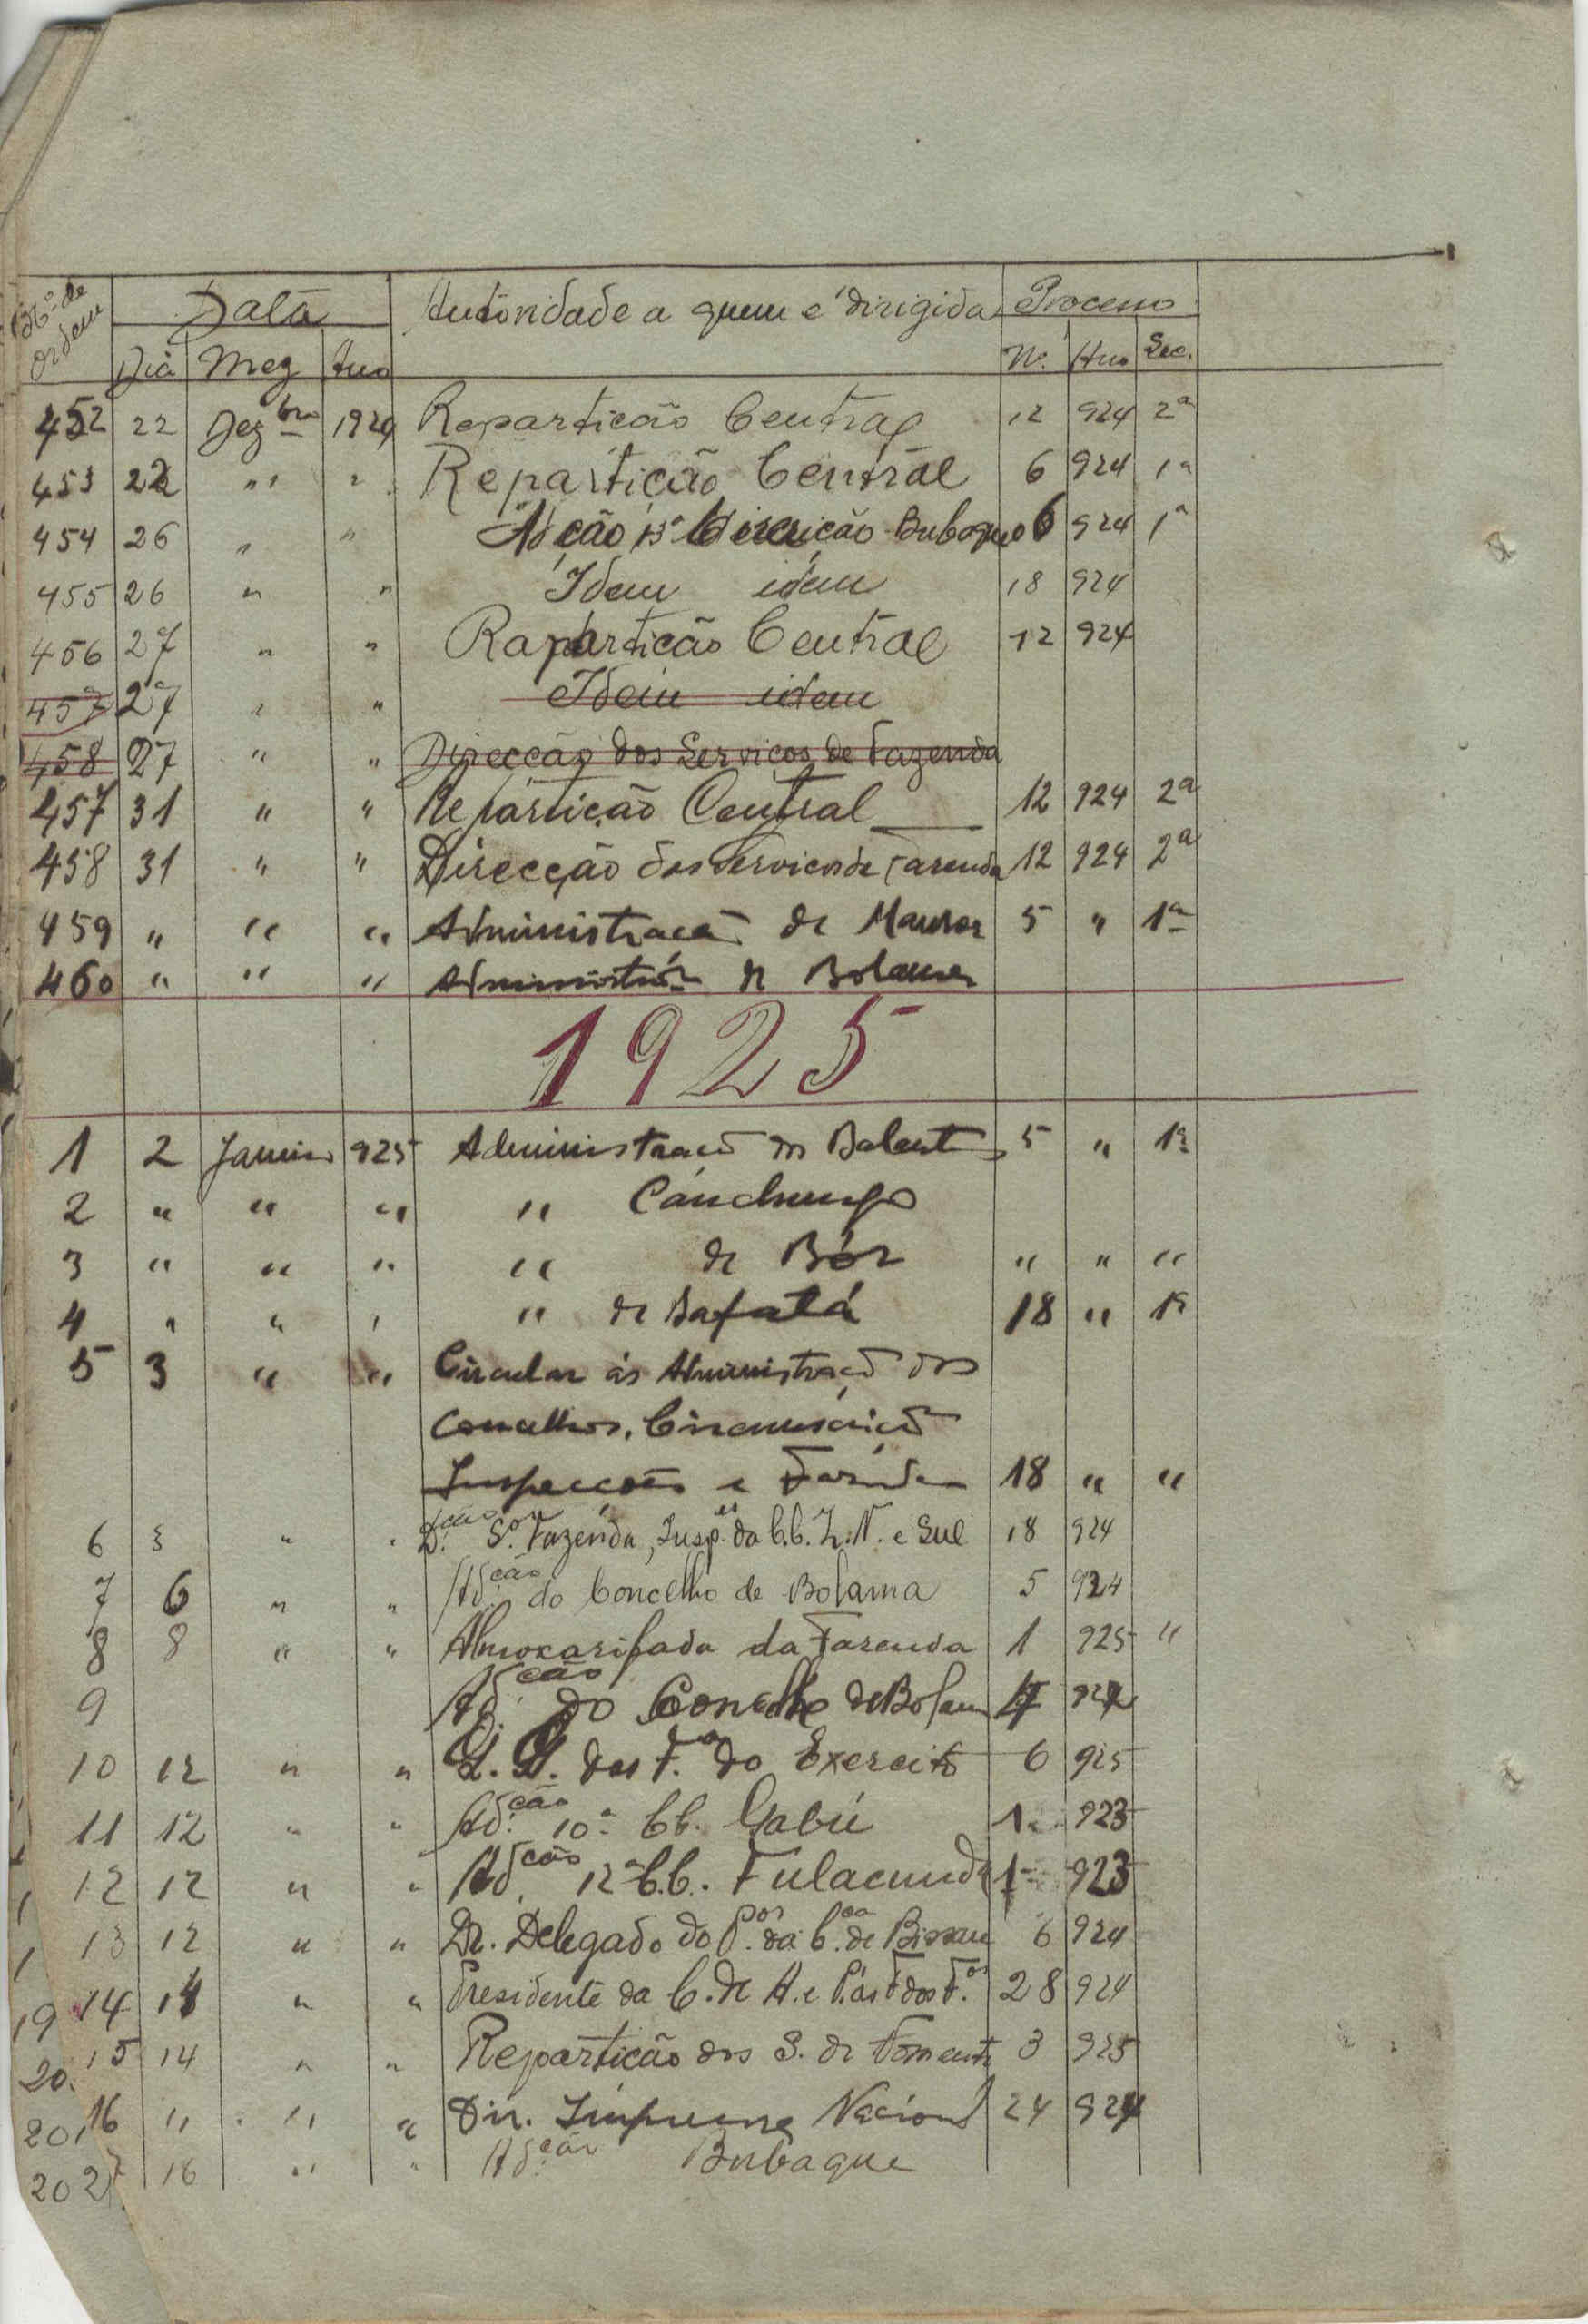 Nº de ordem Data Autoridade a quem é dirigida Processo
Dia Mez Ano Nº. Ano Sec.
452 22 Dezbro 1924 Repartição Central 12 924 2ª
453 22 " " Repartição Central 6 924 1ª
454 26 " " Adção 13ª Circrição Bubaque 6 924 1ª
455 26 " " Idem idem 18 924
456 27 " " Repartição Central 12 924
457 27 " " Idem idem
458 27 " " Direcção dos Serviços de Fazenda
457 31 " " Repartição Central 12 924 2ª
458 31 " " Direcção dos Serviços de Fazenda 12 924 2ª
459 " " " Administração de Mansoa 5 " 1ª
460 " " " Administrção de Bolama
1925
1 2 Janeiro 925 Administração dos Balantas 5 " 1ª
2 " " " " Canchungo
3 " " " " de Bór " " "
4 " " " " de Bafatá 18 " 1ª
5 3 " " Circular ás Administraçõ dos
Concelhos, Circunscriçõ
Inspecções e Fazenda 18 " "
6 3 " " D.ção S.os Fazenda, Insp.es da C.C. Z. N. e Sul 18 924
7 6 " " Ad.ção do Concelho de Bolama 5 924
8 8 " " Almoxarifado da Fazenda 1 925 "
9 Ad.ção do Concelho de Bolama
10 12 " " do Exercito 6 925
11 12 " " Ad.ção 10ª CC. Gabú 1 923
12 12 " " Ad.ção 12ª C.C. Fulacunda 1 923
13 12 " " Dr. Delegado do P.or da C.ca de Bissau 6 924
14 14 " " Presidente da C. de A. e P. ás F. dos F.os 28 924
15 14 " " Repartição dos S. de Fomento 3 925
16 " " " Dir. Imprensa Nacional 24 924
16 " " Ad.ção Bubaque
19
20.
20
202